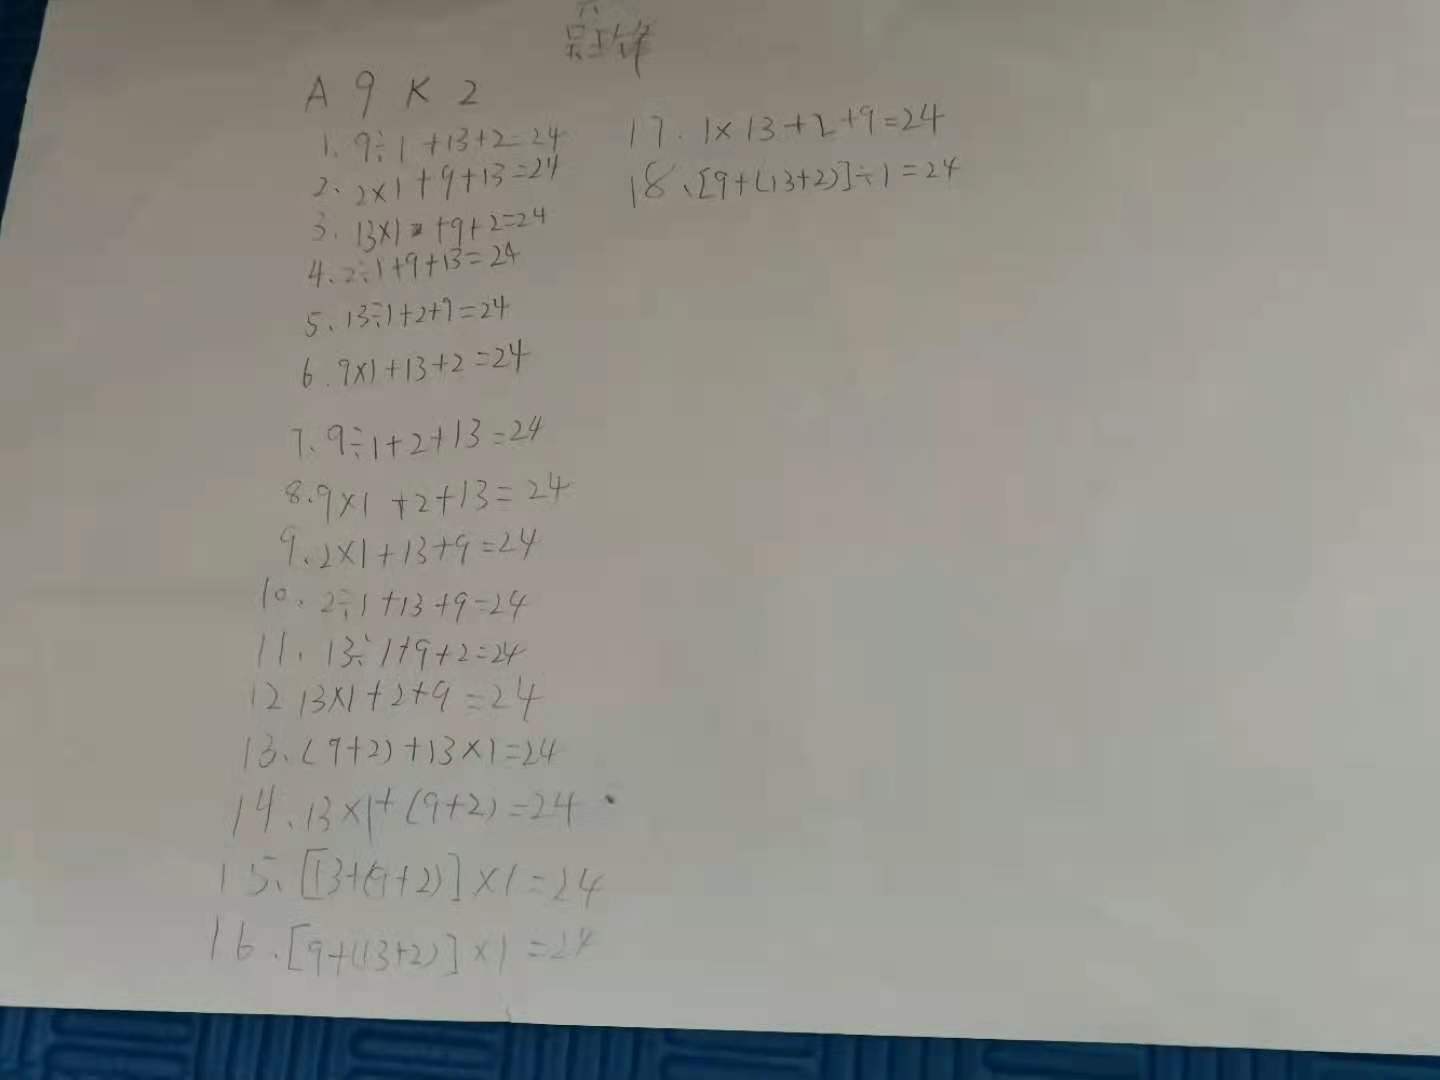 A 9 K 2
1. 9÷1+13+2=24
2、2×1+9+13=24
3. 13×1+9+2=24
4.2÷1+9+13=24
5、13÷1+2+9=24
6.9×1+13+2=24
7、9÷1+2+13=24
8.9×1+2+13=24
9、2×1+13+9=24
10、2÷1+13+9=24
11、13÷1+9+2=24
12 13×1+2+9=24
13、(9+2)+13×1=24
14、13×1+(9+2)=24
15、[13+(9+2)]×1=24
16、[9+(13+2)]×1=24
17. 1×13+2+9=24
18、[9+(13+2)]÷1=24